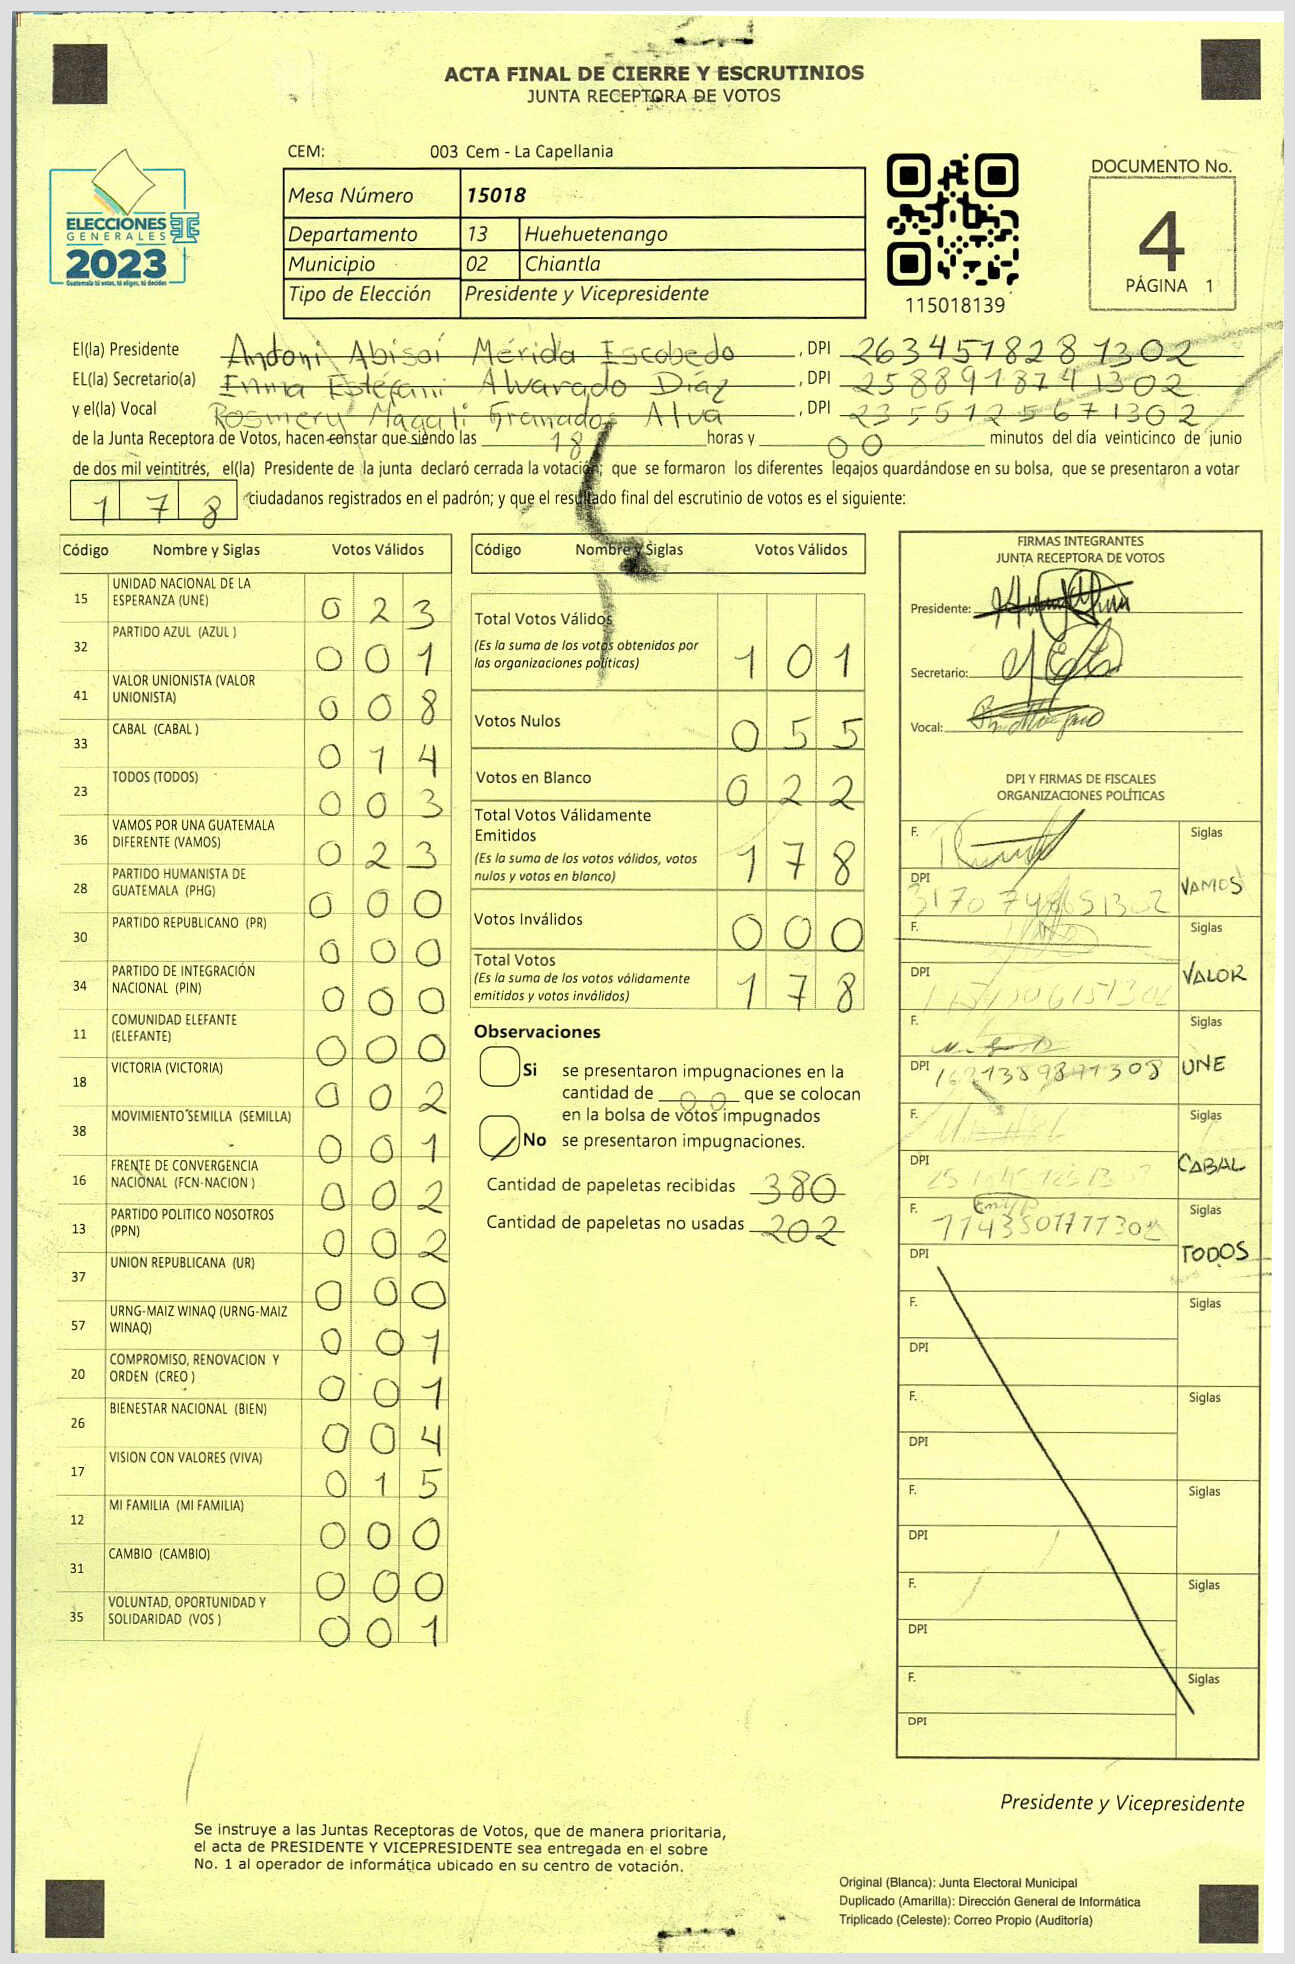 ACTA FINAL DE CIERRE Y ESCRUTINIOS
JUNTA RECEPTORA DE VOTOS
CEM: 003 Cem - La Capellania
Mesa Número 15018
Departamento 13 Huehuetenango
Municipio 02 Chiantla
Tipo de Elección Presidente y Vicepresidente
ELECCIONES
GENERALES
2023
Guatemala tú votas, tú eliges, tú decides
115018139
DOCUMENTO No.
4
PÁGINA 1
El(la) Presidente Andoni Abisaí Mérida Escobedo, DPI 2634518281302
EL(la) Secretario(a) Emma Estéfani Alvarado Díaz, DPI 2588918741302
y el(la) Vocal Rosmery Magali Granados Alva, DPI 2355125671302
de la Junta Receptora de Votos, hacen constar que siendo las 18 horas y 00 minutos del día veinticinco de junio
de dos mil veintitrés, el(la) Presidente de la junta declaró cerrada la votación; que se formaron los diferentes legajos guardándose en su bolsa, que se presentaron a votar
178 ciudadanos registrados en el padrón; y que el resultado final del escrutinio de votos es el siguiente:
Código Nombre y Siglas Votos Válidos
15 UNIDAD NACIONAL DE LA
ESPERANZA (UNE) 023
32 PARTIDO AZUL (AZUL ) 001
41 VALOR UNIONISTA (VALOR
UNIONISTA) 008
33 CABAL (CABAL ) 014
23 TODOS (TODOS) 003
36 VAMOS POR UNA GUATEMALA
DIFERENTE (VAMOS) 023
28 PARTIDO HUMANISTA DE
GUATEMALA (PHG) 000
30 PARTIDO REPUBLICANO (PR) 000
34 PARTIDO DE INTEGRACIÓN
NACIONAL (PIN) 000
11 COMUNIDAD ELEFANTE
(ELEFANTE) 000
18 VICTORIA (VICTORIA) 002
38 MOVIMIENTO SEMILLA (SEMILLA) 001
16 FRENTE DE CONVERGENCIA
NACIONAL (FCN-NACION ) 002
13 PARTIDO POLITICO NOSOTROS
(PPN) 002
37 UNION REPUBLICANA (UR) 000
57 URNG-MAIZ WINAQ (URNG-MAIZ
WINAQ) 001
20 COMPROMISO, RENOVACION Y
ORDEN (CREO ) 001
26 BIENESTAR NACIONAL (BIEN) 004
17 VISION CON VALORES (VIVA) 015
12 MI FAMILIA (MI FAMILIA) 000
31 CAMBIO (CAMBIO) 000
35 VOLUNTAD, OPORTUNIDAD Y
SOLIDARIDAD (VOS ) 001
Código Nombre y Siglas Votos Válidos
Total Votos Válidos
(Es la suma de los votos obtenidos por
las organizaciones políticas) 101
Votos Nulos 055
Votos en Blanco 022
Total Votos Válidamente
Emitidos
(Es la suma de los votos válidos, votos
nulos y votos en blanco) 178
Votos Inválidos 000
Total Votos
(Es la suma de los votos válidamente
emitidos y votos inválidos) 178
Observaciones
Si se presentaron impugnaciones en la
cantidad de 00 que se colocan
en la bolsa de votos impugnados
No se presentaron impugnaciones.
Cantidad de papeletas recibidas 380
Cantidad de papeletas no usadas 202
FIRMAS INTEGRANTES
JUNTA RECEPTORA DE VOTOS
Presidente:
Secretario:
Vocal:
DPI Y FIRMAS DE FISCALES
ORGANIZACIONES POLÍTICAS
F. Siglas
DPI VAMOS
F. Siglas
DPI VALOR
F. Siglas
DPI UNE
F. Siglas
DPI CABAL
F. Siglas
DPI TODOS
F. Siglas
DPI
F. Siglas
DPI
F. Siglas
DPI
F. Siglas
DPI
F. Siglas
DPI
Presidente y Vicepresidente
Se instruye a las Juntas Receptoras de Votos, que de manera prioritaria,
el acta de PRESIDENTE Y VICEPRESIDENTE sea entregada en el sobre
No. 1 al operador de informática ubicado en su centro de votación.
Original (Blanca): Junta Electoral Municipal
Duplicado (Amarilla): Dirección General de Informática
Triplicado (Celeste): Correo Propio (Auditoría)